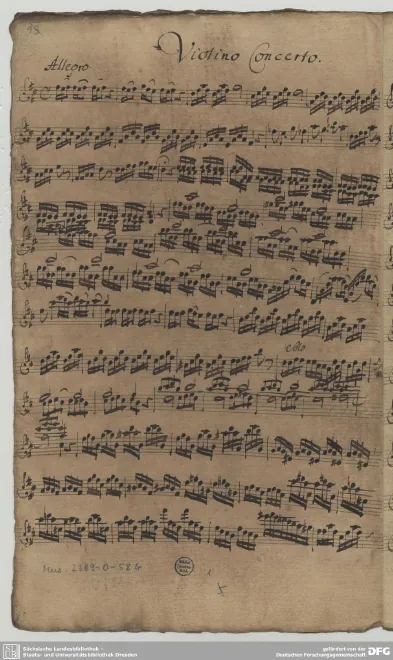 Violino Concerto.
Allegro
Solo
Mus. 2389-O-58 k
Sächsische Landesbibliothek –
Staats- und Universitätsbibliothek Dresden
gefördert von der
Deutschen Forschungsgemeinschaft DFG